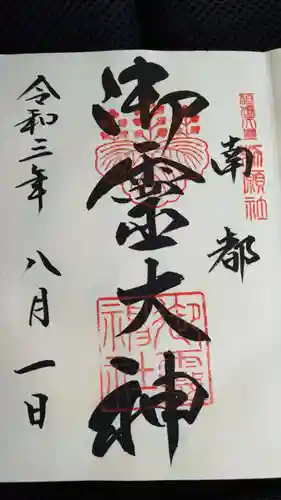 南都
御霊大神
令和三年
八月一日
御霊神社